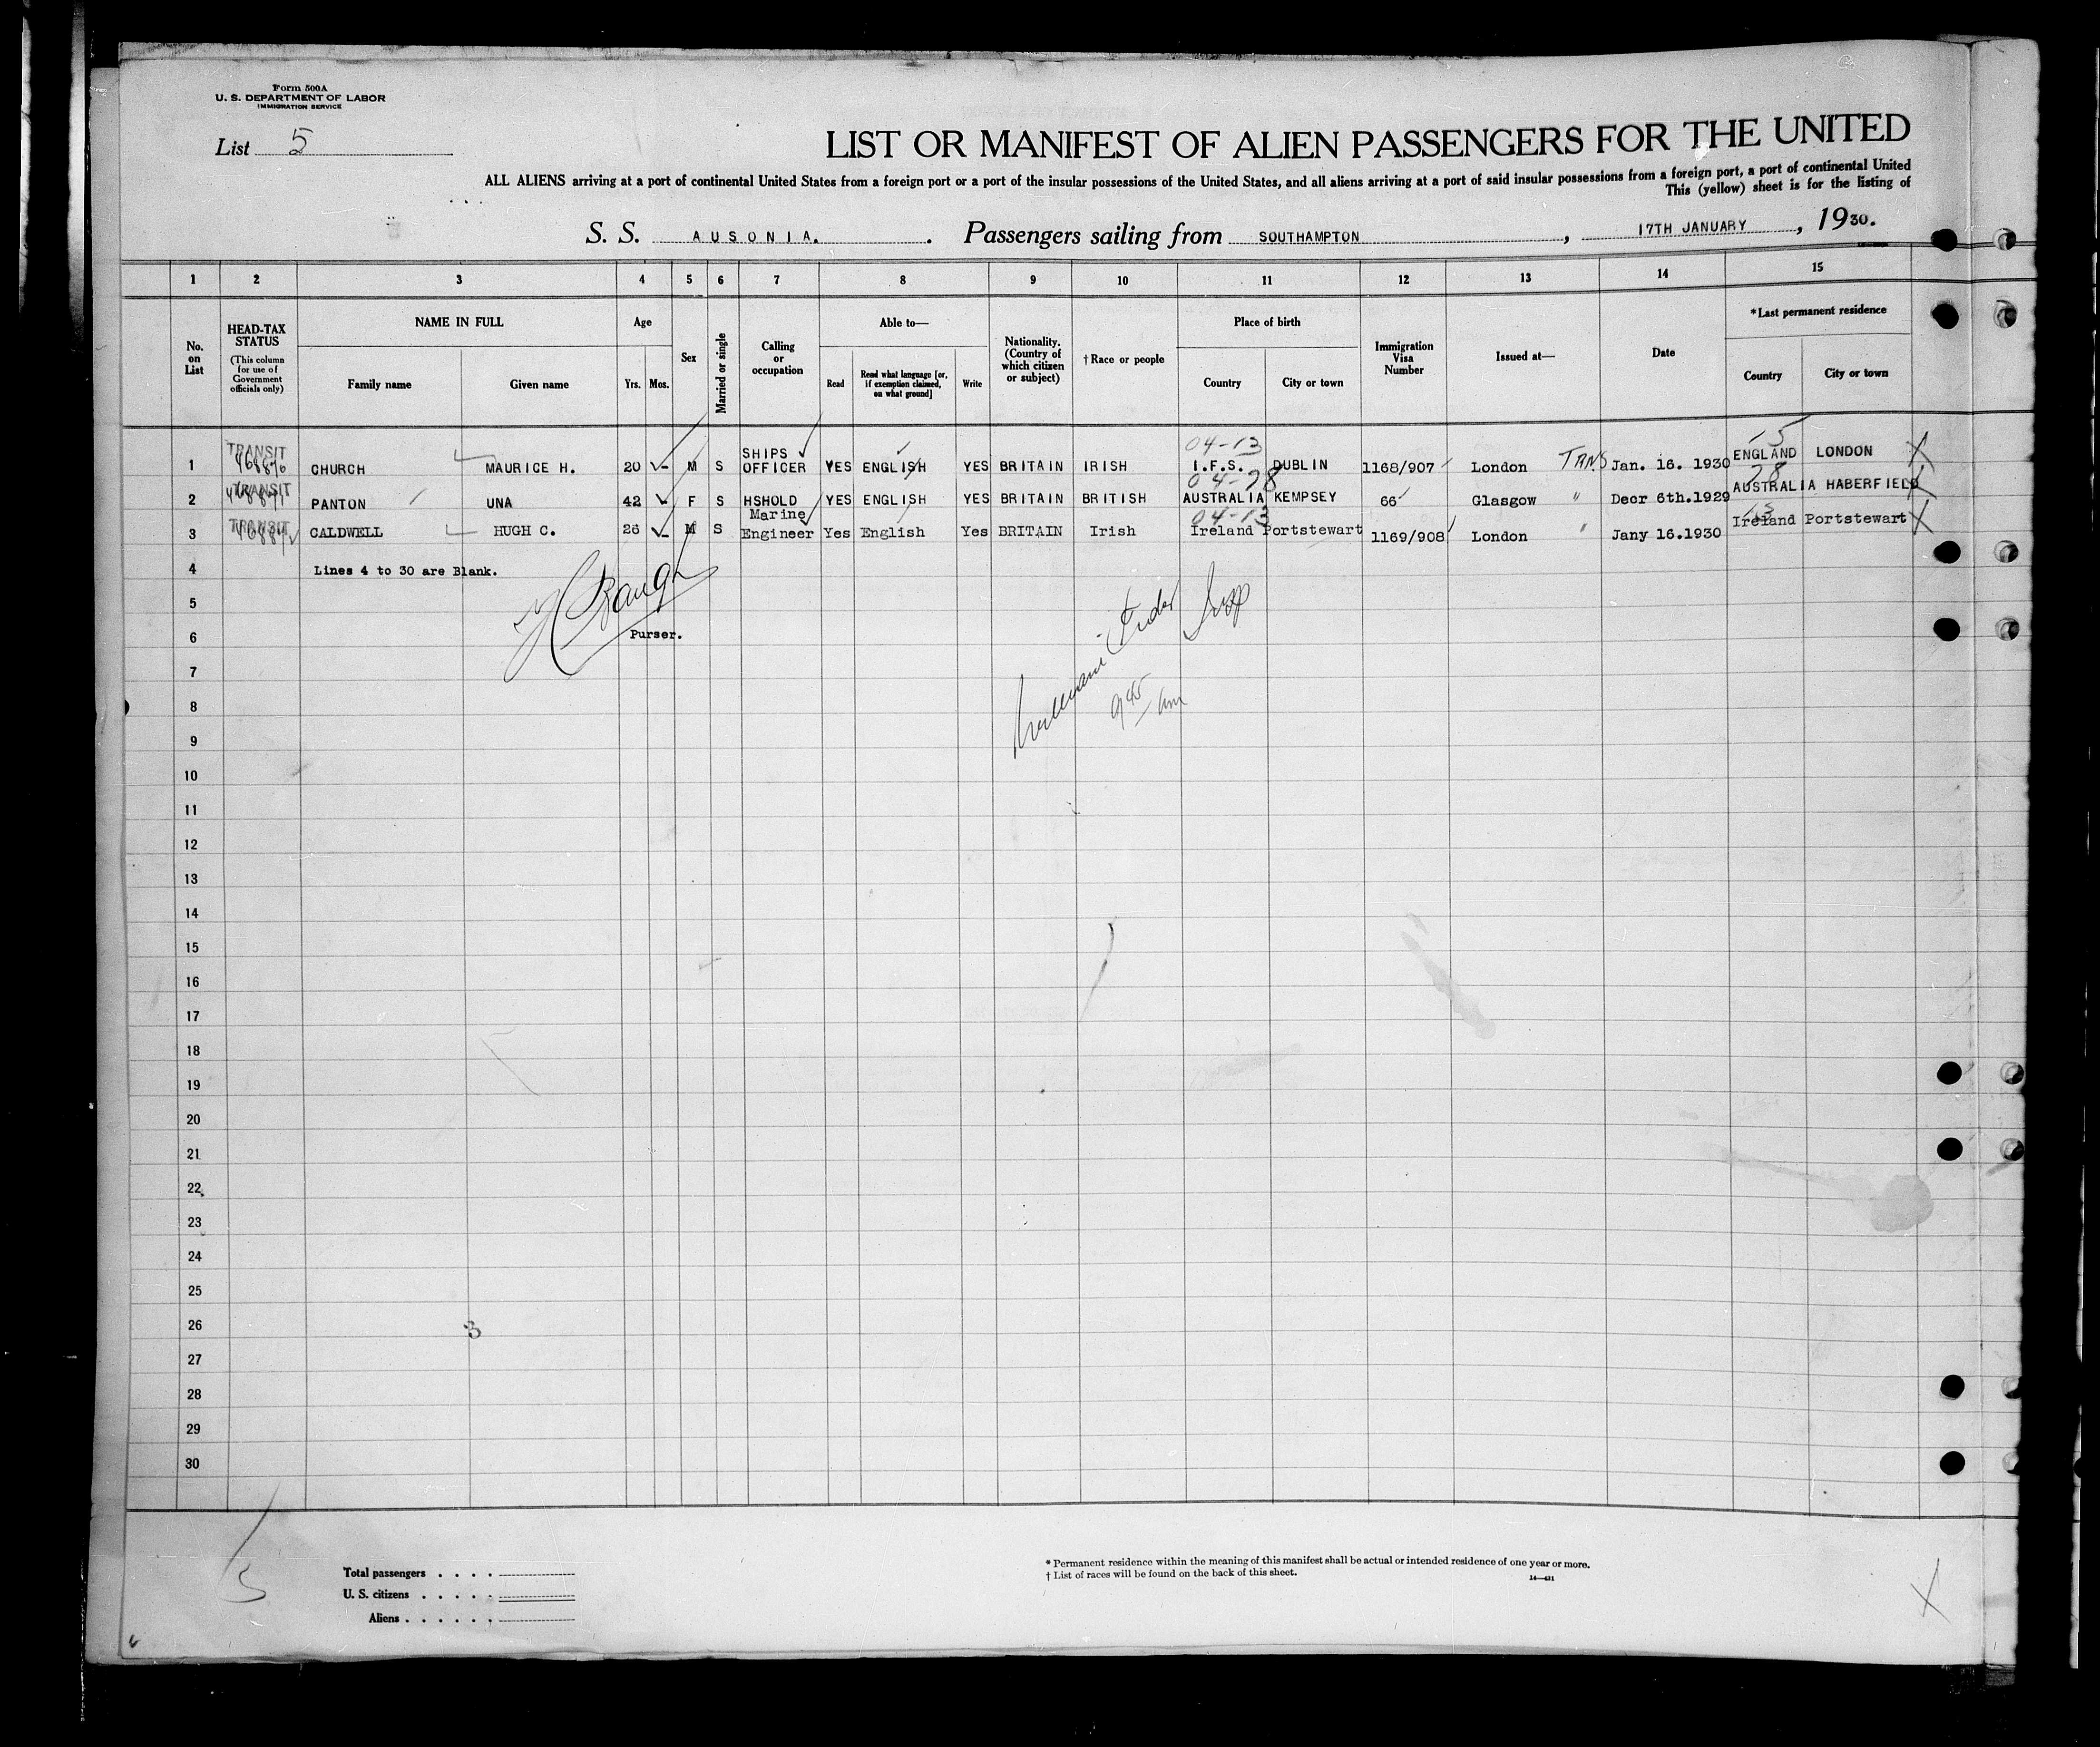 Form 500A
U. S. DEPARTMENT OF LABOR
IMMIGRATION SERVICE
List 5
LIST OR MANIFEST OF ALIEN PASSENGERS FOR THE UNITED
ALL ALIENS arriving at a port of continental United States from a foreign port or a port of the insular possessions of the United States, and all aliens arriving at a port of said insular possessions from a foreign port, a port of continental United
This (yellow) sheet is for the listing of
S. S. AUSONIA. . Passengers sailing from SOUTHAMPTON , 17TH JANUARY , 1930.
1 2 3 4 5 6 7 8 9 10 11 12 13 14 15
No. on List
HEAD-TAX STATUS (This column for use of Government officials only)
NAME IN FULL
Family name Given name
Age
Yrs. Mos.
Sex
Married or single
Calling or occupation
Able to—
Read Read what language [or, if exemption claimed, on what ground] Write
Nationality. (Country of which citizen or subject)
†Race or people
Place of birth
Country City or town
Immigration Visa Number
Issued at—
Date
*Last permanent residence
Country City or town
04-13 15
1 TRANSIT CHURCH MAURICE H. 20 M S SHIPS OFFICER YES ENGLISH YES BRITAIN IRISH I.F.S. DUBLIN 1168/907 London TRNS Jan. 16. 1930 ENGLAND LONDON X
04-78 78
2 TRANSIT PANTON UNA 42 F S HSHOLD YES ENGLISH YES BRITAIN BRITISH AUSTRALIA KEMPSEY 66 Glasgow " Decr 6th.1929 AUSTRALIA HABERFIELD X
04-13 13
3 TRANSIT CALDWELL HUGH C. 26 M S Marine Engineer Yes English Yes BRITAIN Irish Ireland Portstewart 1169/908 London " Jany 16.1930 Ireland Portstewart X
4 Lines 4 to 30 are Blank.
5
6 Purser.
7
8 9 45 am
9
10
11
12
13
14
15
16
17
18
19
20
21
22
23
24
25
26 3
27
28
29
30
5
Total passengers . . . .
U. S. citizens . . . . .
Aliens . . . . . .
* Permanent residence within the meaning of this manifest shall be actual or intended residence of one year or more.
† List of races will be found on the back of this sheet.
14—431
X